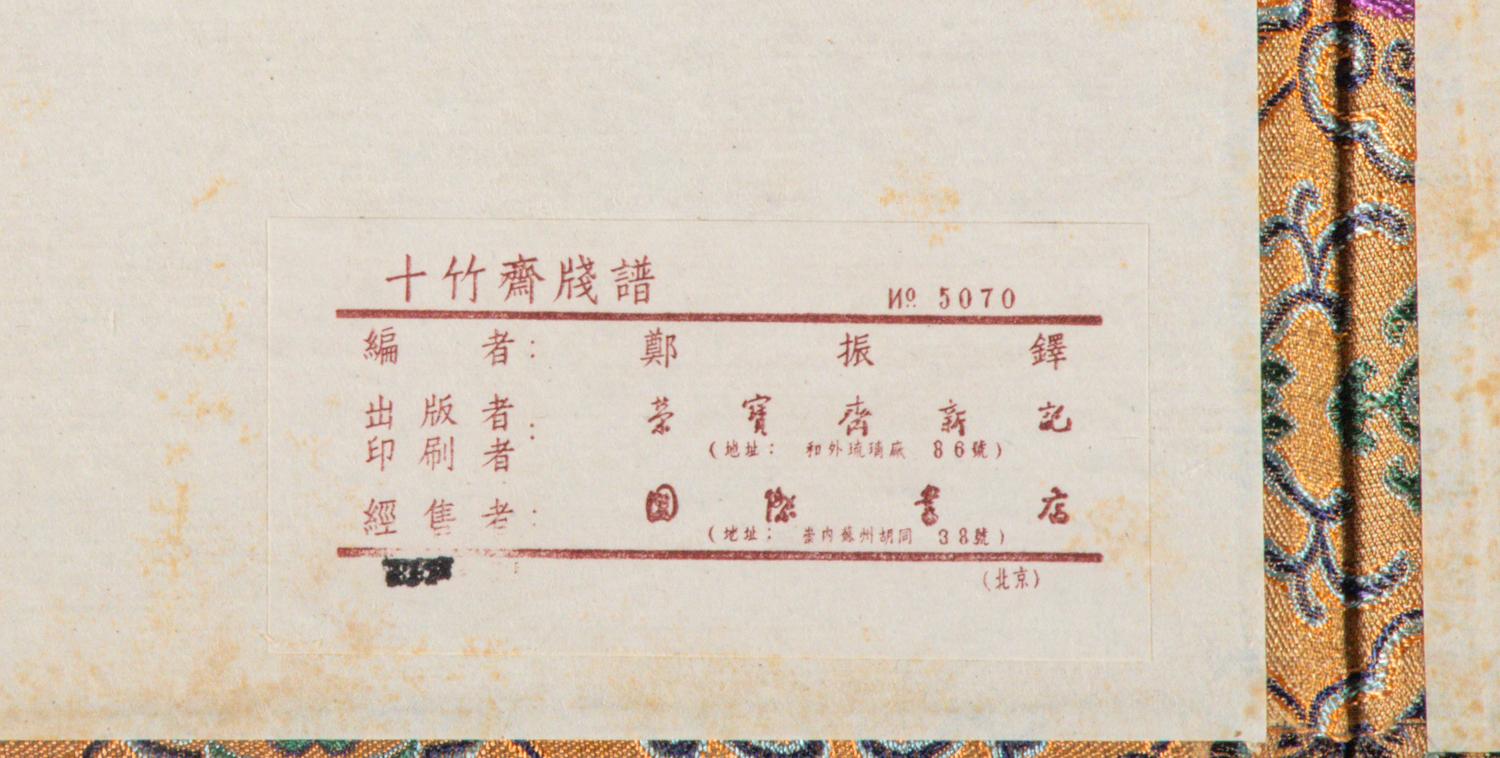 十竹齋牋譜
№ 5070
編者: 鄭振鐸
出版者
印刷者: 荣寳齋新記
(地址: 和外琉璃厰 86號)
經售者: 國際書店
(地址: 崇内蘇州胡同 38號)
(北京)